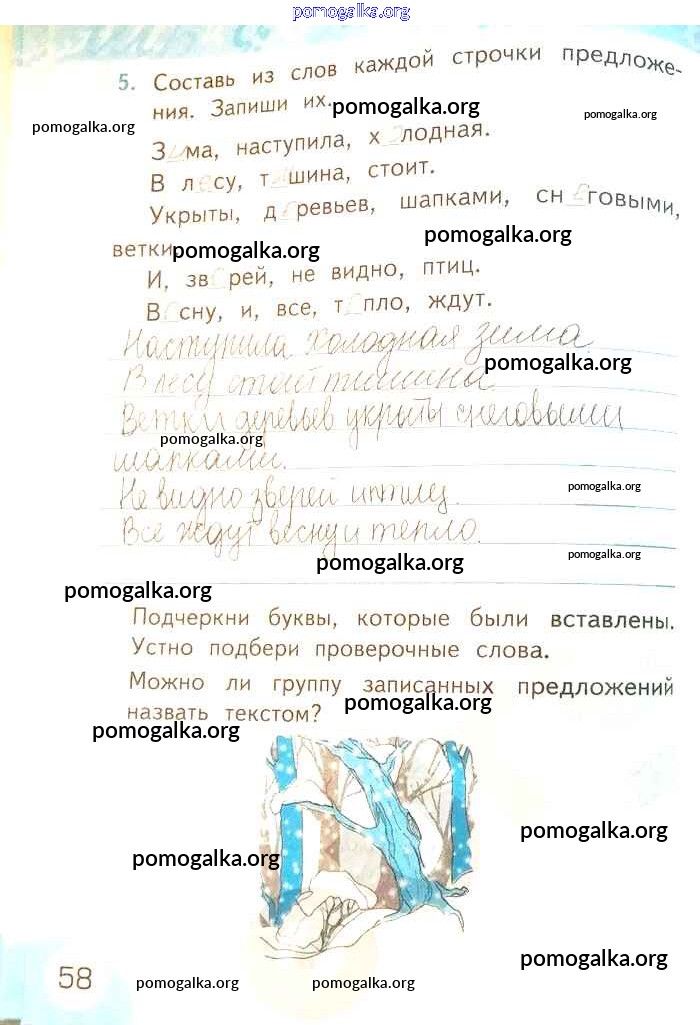 pomogalka.org
5. Составь из слов каждой строчки предложе-
ния. Запиши их. pomogalka.org pomogalka.org
pomogalka.org
Зима, наступила, холодная.
В лесу, тишина, стоит.
Укрыты, деревьев, шапками, снеговыми,
ветки pomogalka.org pomogalka.org
И, зверей, не видно, птиц.
Весну, и, все, тепло, ждут.
Наступила холодная зима.
pomogalka.org
В лесу стоит тишина.
Ветки деревьев укрыты снеговыми
pomogalka.org
шапками.
Не видно зверей и птиц. pomogalka.org
Все ждут весну и тепло.
pomogalka.org pomogalka.org
pomogalka.org
Подчеркни буквы, которые были вставлены.
Устно подбери проверочные слова.
Можно ли группу записанных предложений
назвать текстом? pomogalka.org
pomogalka.org
pomogalka.org
pomogalka.org
pomogalka.org
58 pomogalka.org pomogalka.org